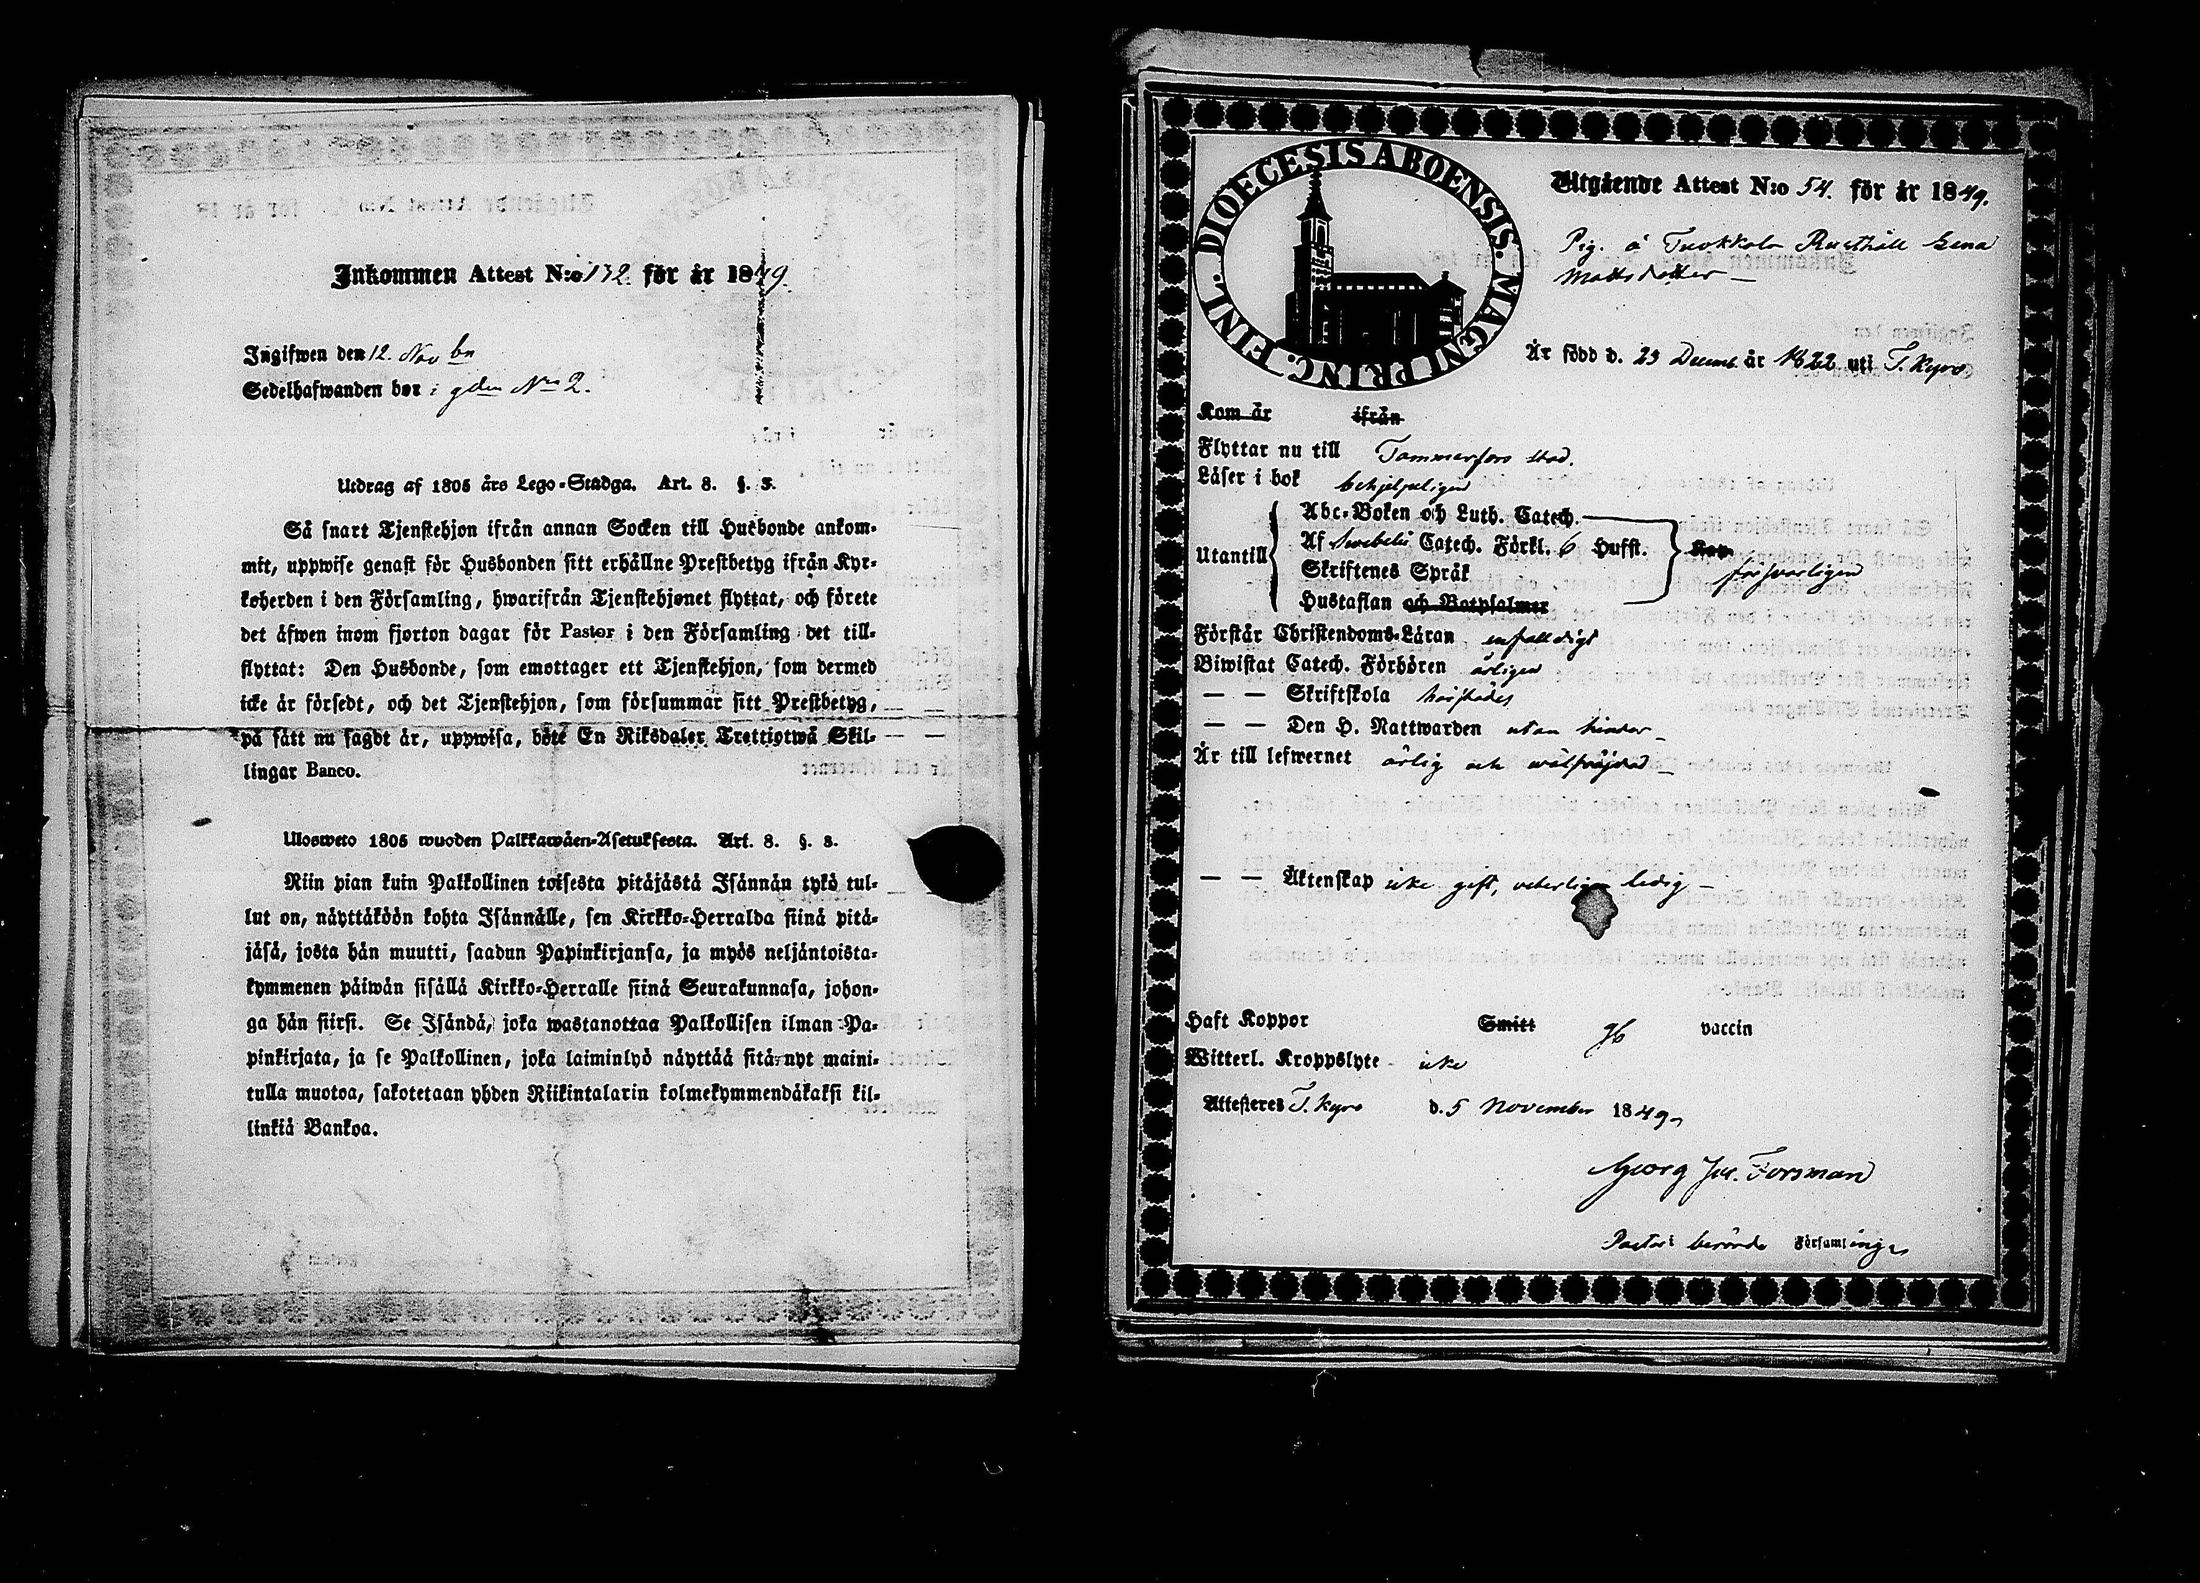 Inkommen Attest N:o 172. för år 1849.
Ingifwen den 12. Novbr
Sedelhafwanden bor i gden No 2.
Utdrag af 1805 års Lego-Stadga. Art. 8. §. 3.
Så snart Tjenstehjon ifrån annan Socken till Husbonde ankom-
mit, uppwise genast för Husbonden sitt erhållne Prestbetyg ifrån Kyr-
koherden i den Församling, hwarifrån Tjenstehjonet flyttat, och förete
det äfwen inom fjorton dagar för Pastor i den Församling det till-
flyttat: Den Husbonde, som emottager ett Tjenstehjon, som dermed
icke är försedt, och det Tjenstehjon, som försummar sitt Prestbetyg,
på sätt nu sagdt är, uppwisa, böte En Riksdaler Trettiotwå Skil-
lingar Banco.
Ulosweto 1805 wuoden Palkkawäen-Asetuksesta. Art. 8. §. 3.
Niin pian kuin Palkollinen toisesta pitäjästä Isännän tykö tul-
lut on, näyttäköön kohta Isännälle, sen Kirkko-Herralda siinä pitä-
jäsä, josta hän muutti, saadun Papinkirjansa, ja myös neljäntoista-
kymmenen päiwän sisällä Kirkko-Herralle siinä Seurakunnasa, johon-
ga hän siirsi. Se Isändä, joka wastanottaa Palkollisen ilman Pa-
pinkirjata, ja se Palkollinen, joka laiminlyö näyttää sitä nyt maini-
tulla muotoa, sakotetaan yhden Riikintalarin kolmekymmendäkaksi kil-
linkiä Bankoa.
DIOECESIS ABOENSIS. MAGNI PRINC. FINL.
Utgående Attest N:o 54. för år 1849.
Pig. å Tuokkola Rusthåll Lena
Mattsdotter
Är född d. 23 Decemb. år 1822 uti T. Kyro
Kom år ifrån
Flyttar nu till Tammerfors stad.
Läser i bok behjelpligen
Abc-Boken och Luth. Catech.
Utantill Af Svebelii Catech. Förkl. 6 Hufst.
försvarligen
Skriftenes Språk
Hustaflan och Botpsalmer
Förstår Christendoms-Läran enfaldigt
Biwistat Catech. Förhören årligen
— — Skriftskola
— — Den H. Nattwarden utan hinder
Är till lefwernet ärlig och wälfräjdad
— — Äktenskap icke gift, veterligen ledig
Haft Koppor Smitt vaccin
Witterl. Kroppslyte icke
Attesteres T. Kyro d. 5 November 1849
Georg Jac. Forsman
Pastor i berörde Församlinge